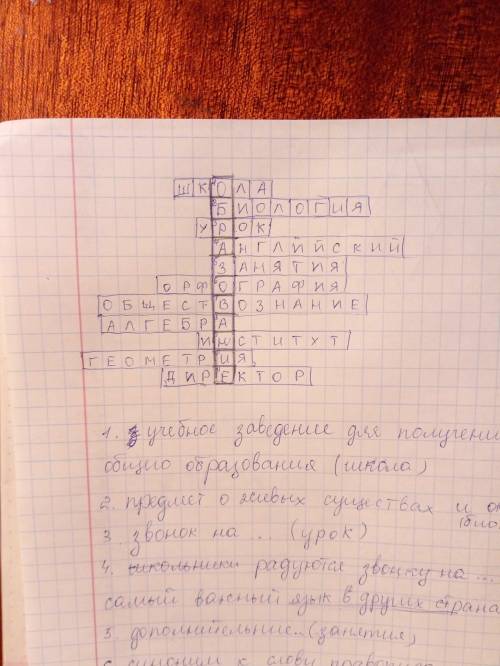 ШКОЛА
БИОЛОГИЯ
УРОК
АНГЛИЙСКИЙ
ЗАНЯТИЯ
ОРФОГРАФИЯ
ОБЩЕСТВОЗНАНИЕ
АЛГЕБРА
ИНСТИТУТ
ГЕОМЕТРИЯ
ДИРЕКТОР
1. учебное заведение для получени
общио образования (школа)
2. предмет о живых существах и
(био
3. звонок на ... (урок)
4. школьники радуются звонку на ...
самый важный язык в других страна
5. дополнительные.. (занятия)
синоним к слову